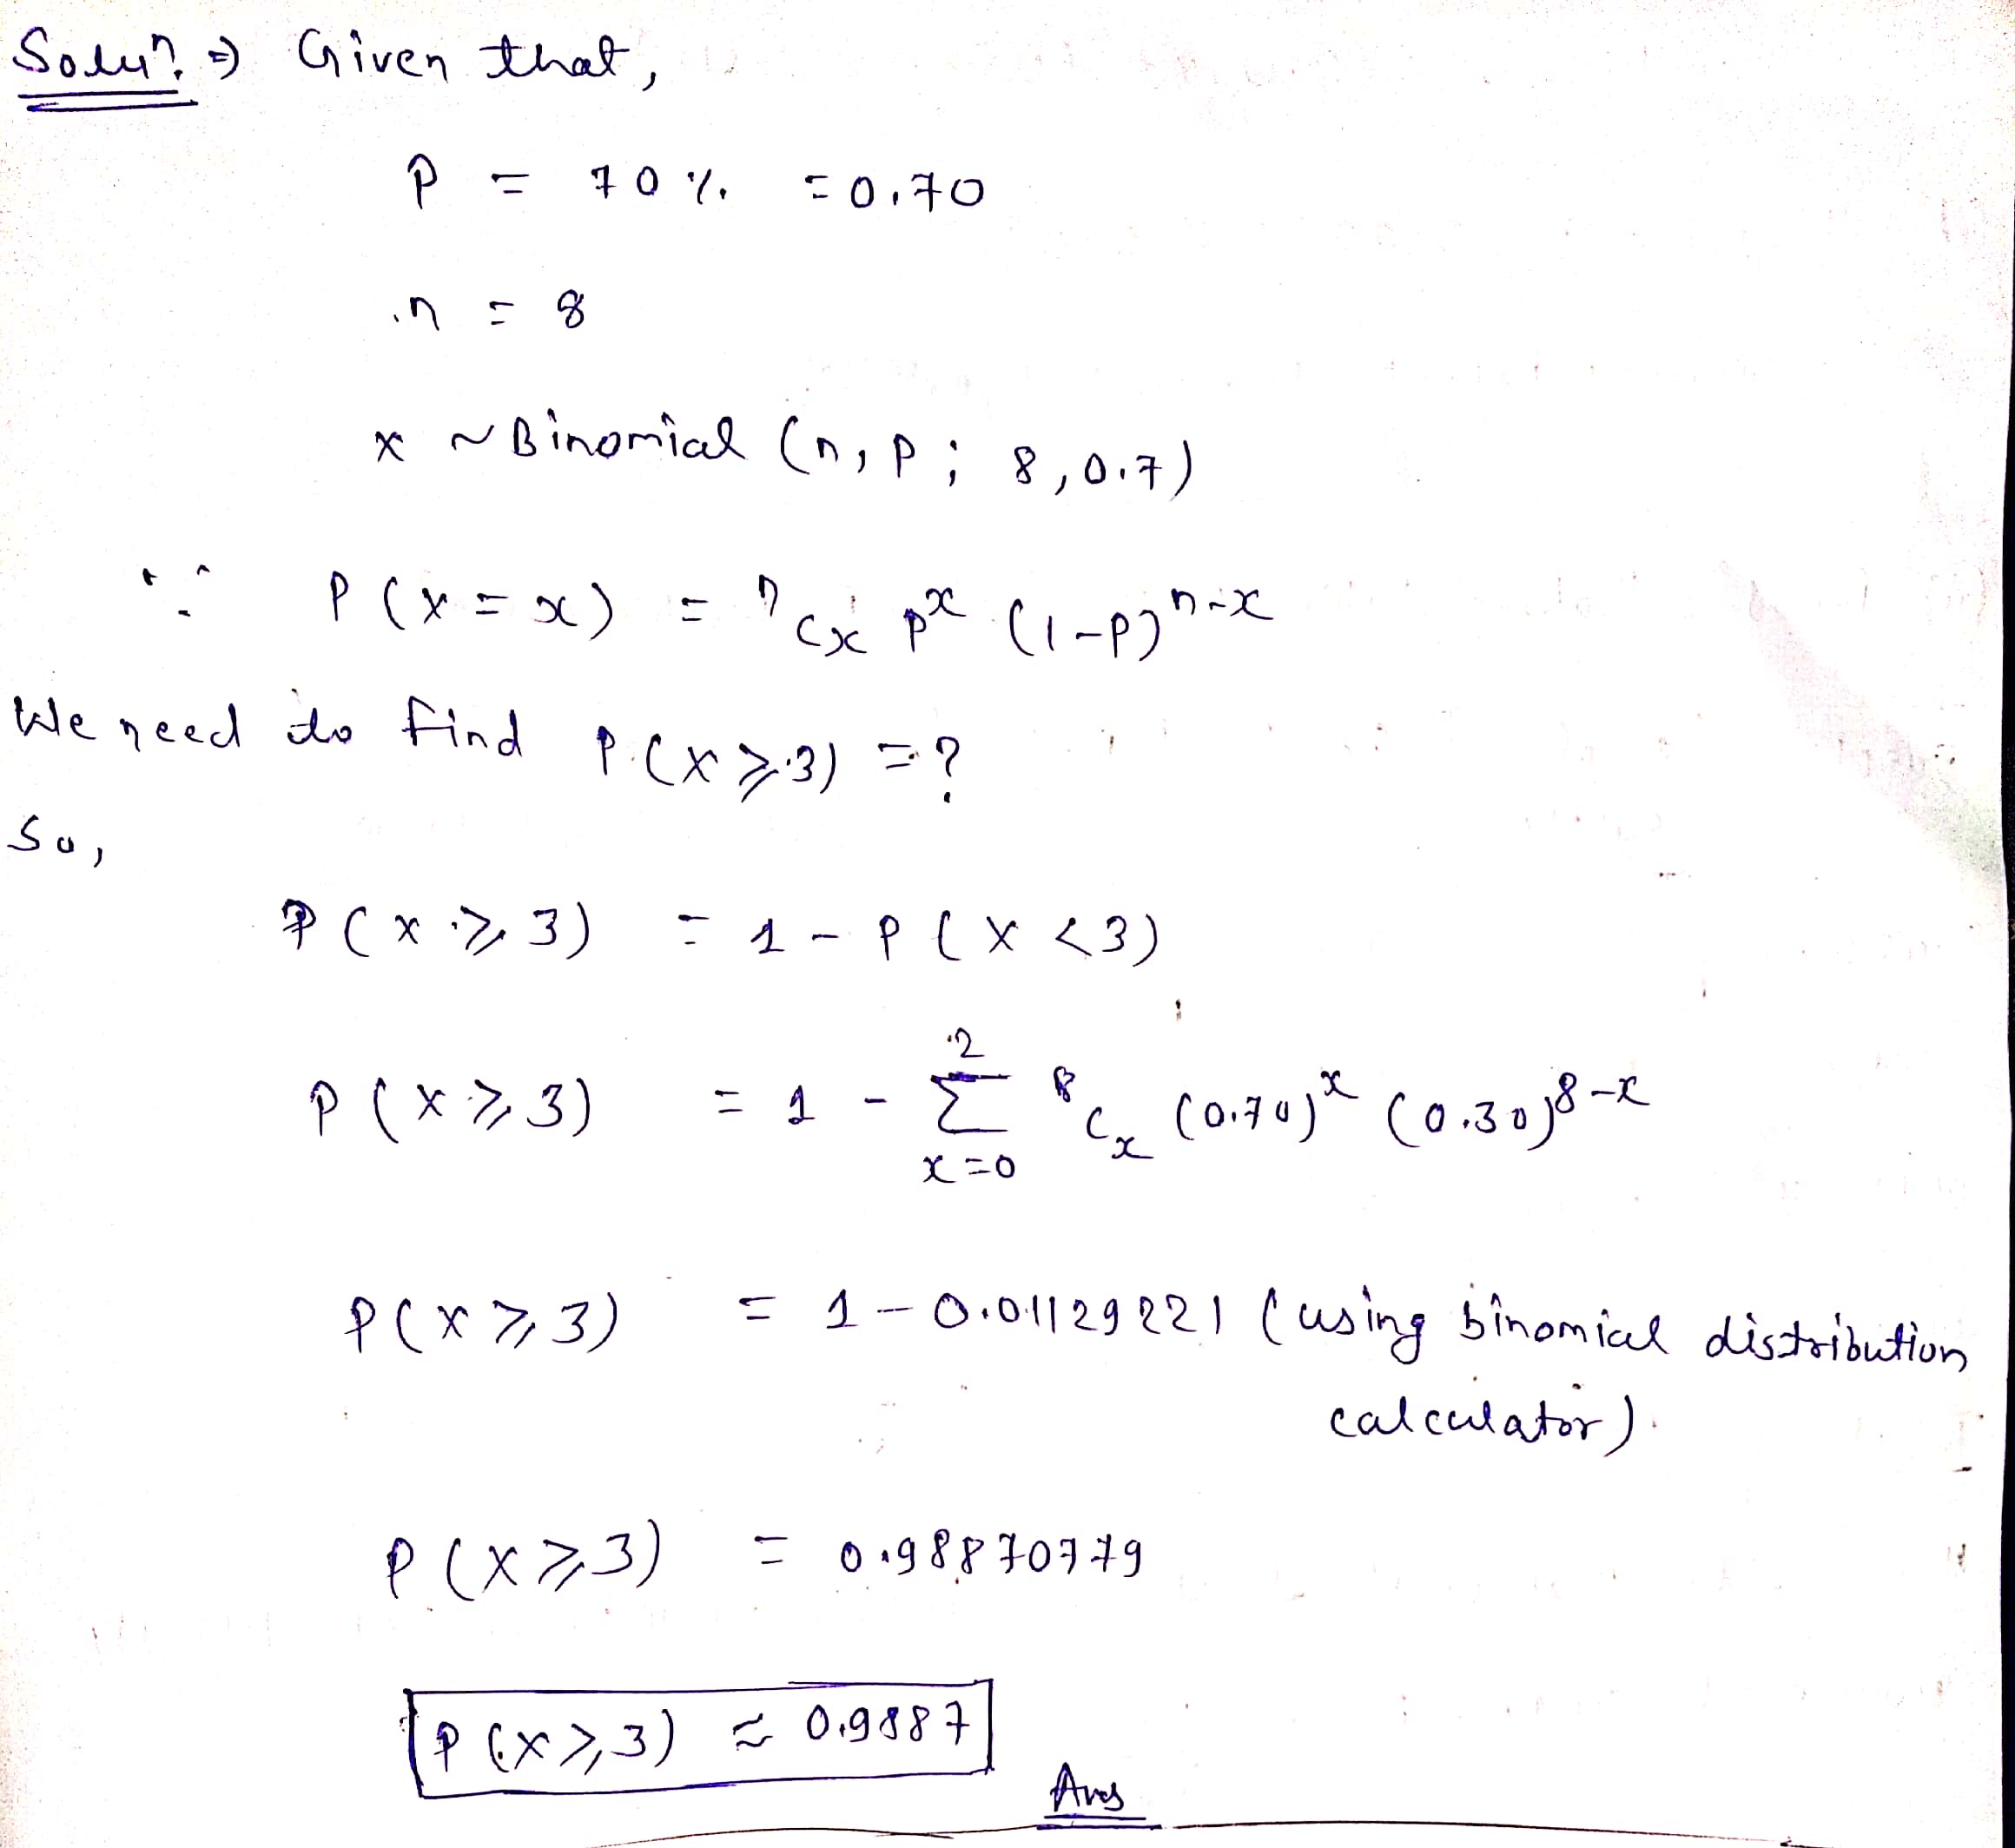 Soluⁿ. ⇒ Given that,
P = 70 % = 0.70
n = 8
x ~ Binomial (n, p ; 8, 0.7)
∵ P (X = x) = ⁿCx pˣ (1-p)ⁿ⁻ˣ
We need to find P(X ⩾ 3) = ?
So,
P (X ⩾ 3) = 1 - P (X < 3)
P (X ⩾ 3) = 1 - 2 Σ x=0 ⁸Cₓ (0.70)ˣ (0.30)⁸⁻ˣ
P(X ⩾ 3) = 1 - 0.01129221 (using binomial distribution
calculator)
P (X ⩾ 3) = 0.98870779
P (X ⩾ 3) ≈ 0.9887
Ans